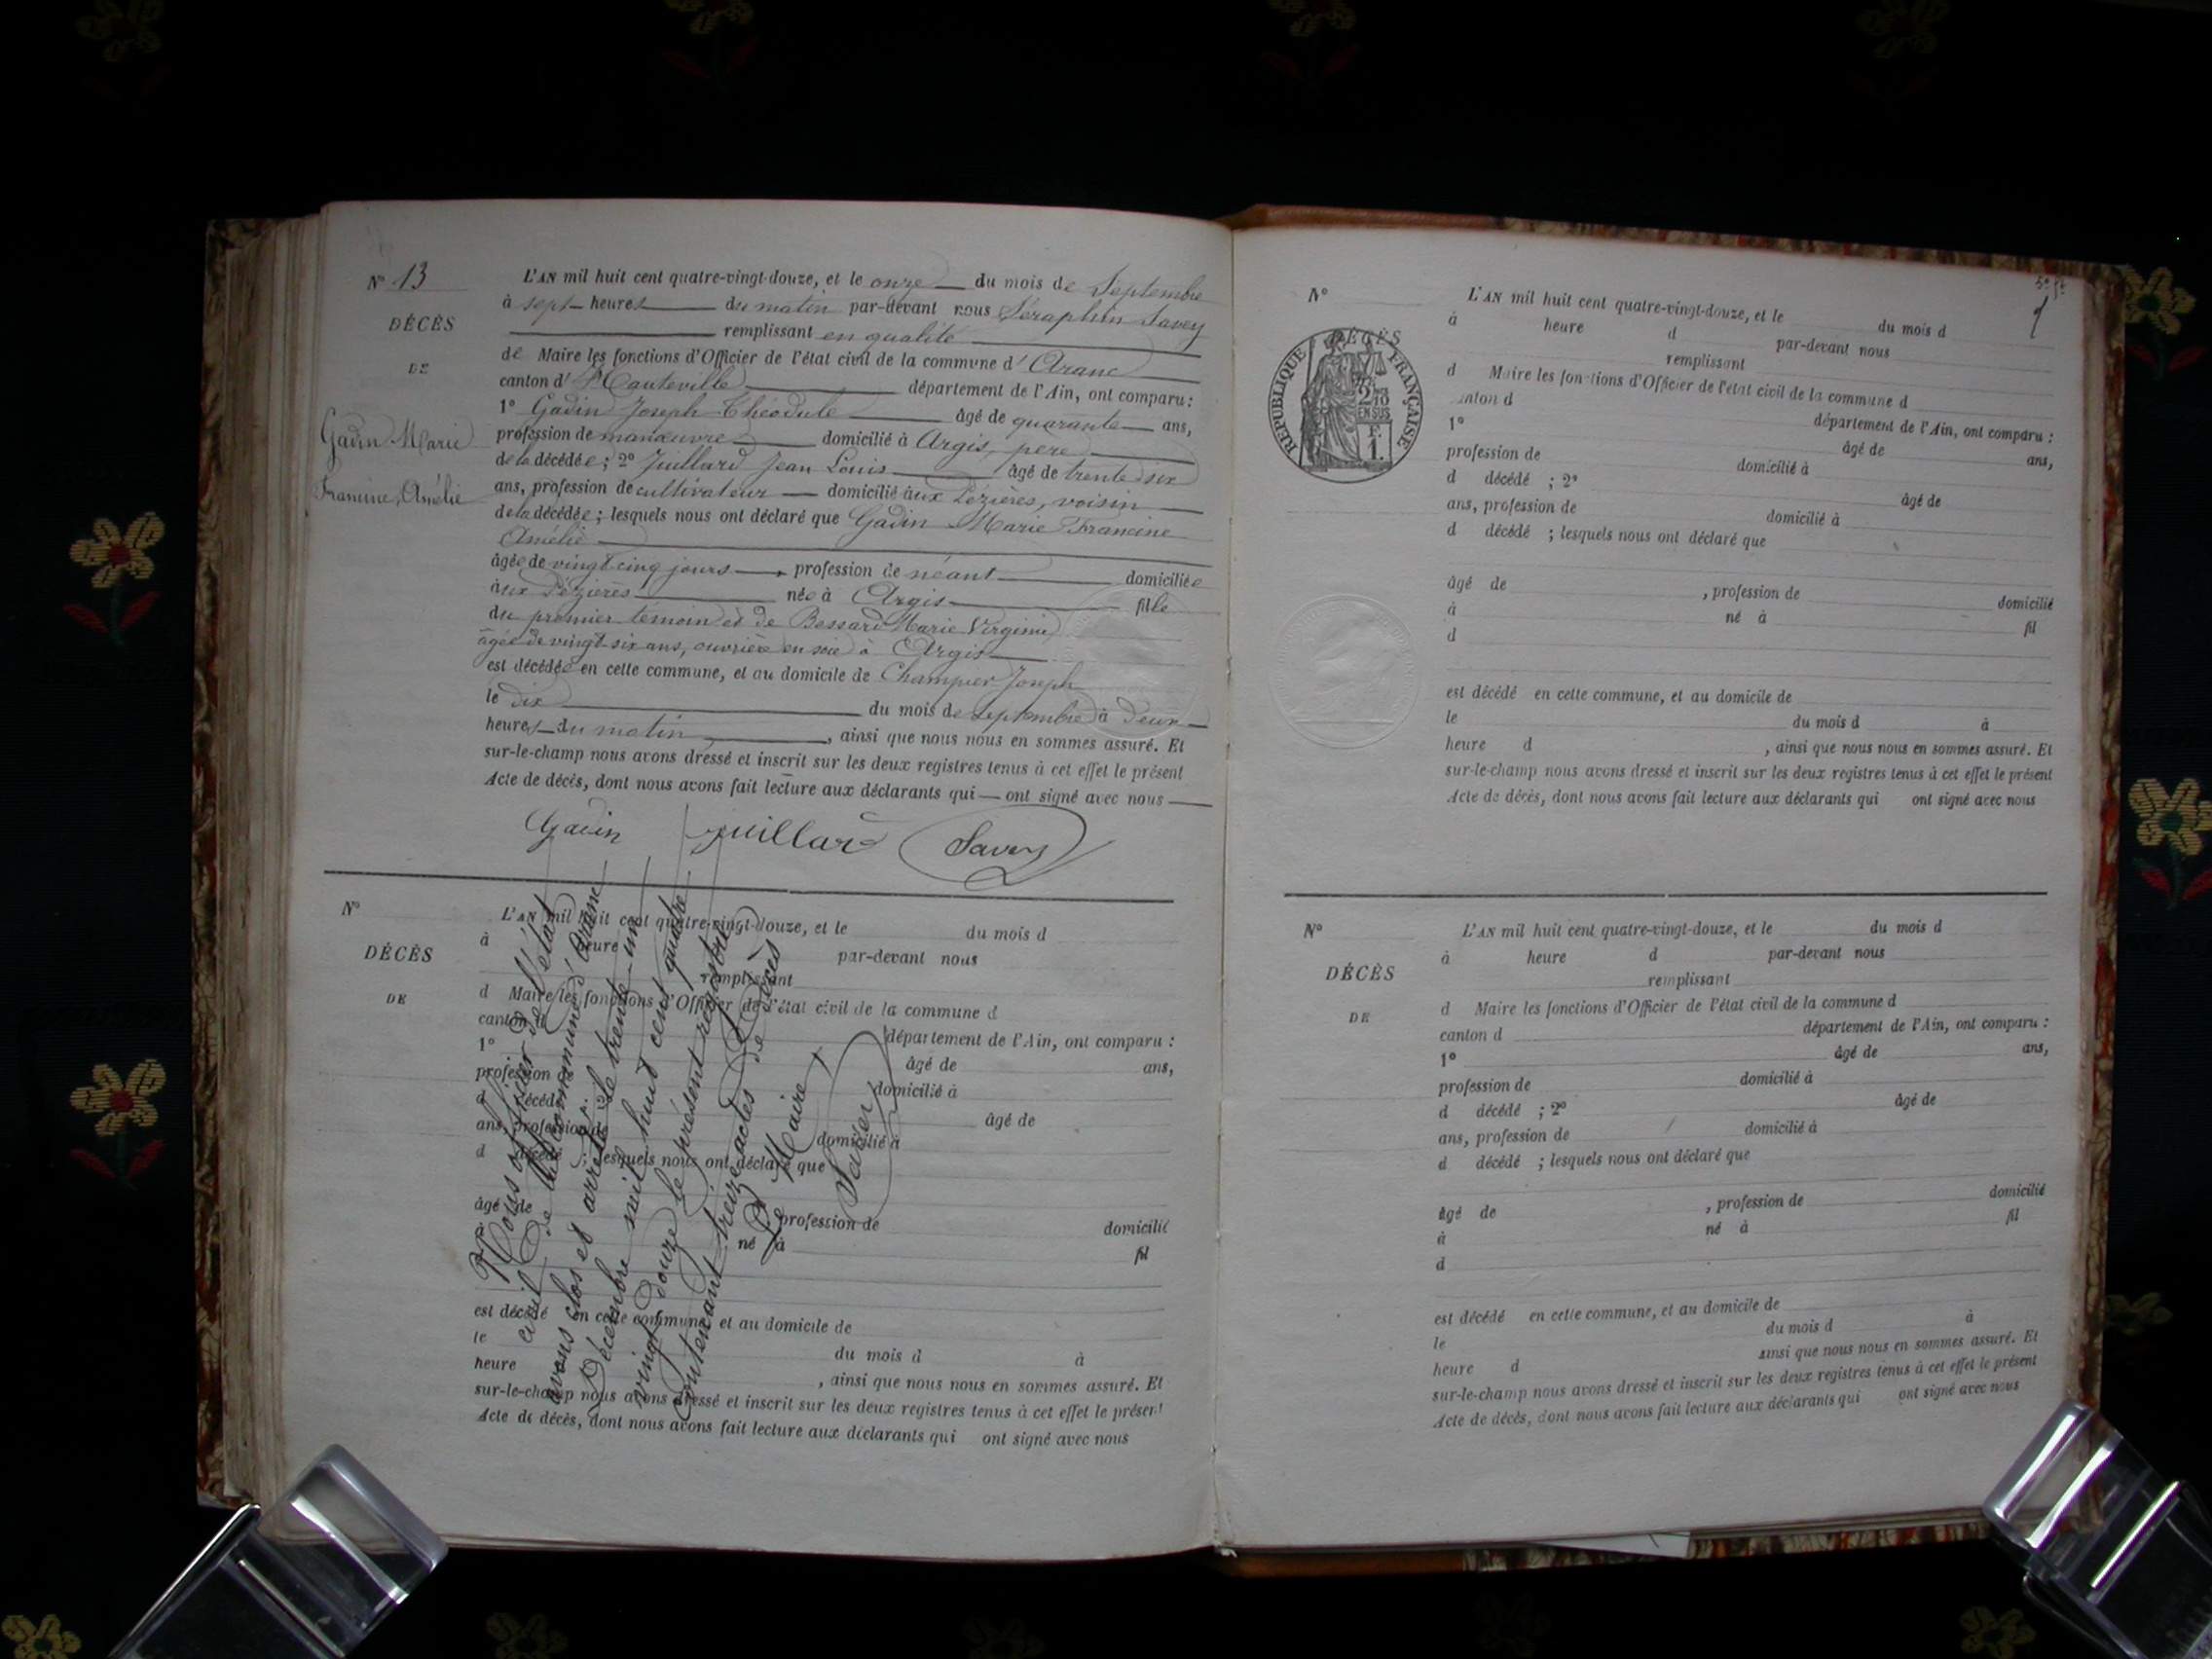 N° 13
DÉCÈS
DE
Gadin Marie
Francine, Amélie
L'AN mil huit cent quatre-vingt-douze, et le onze du mois de Septembre
à sept heures du matin par-devant nous Séraphin Savey
remplissant en qualité
de Maire les fonctions d'Officier de l'état civil de la commune d'Aranc
canton d'Hauteville département de l'Ain, ont comparu :
1° Gadin Joseph Théodule âgé de quarante ans,
profession de manœuvre domicilié à Argis, père
de la décédée ; 2° Juillard Jean Louis âgé de trente six
ans, profession de cultivateur domicilié aux Pézières, voisin
de la décédée ; lesquels nous ont déclaré que Gadin Marie Francine
Amélie
âgée de vingt cinq jours, profession de néant domiciliée
aux Pézières née à Argis fille
du premier témoin et de Bessard Marie Virginie
âgée de vingt-six ans, ouvrière en soie à Argis
est décédée en cette commune, et au domicile de Champier Joseph
le dix du mois de septembre à deux
heures du matin, ainsi que nous nous en sommes assuré. Et
sur-le-champ nous avons dressé et inscrit sur les deux registres tenus à cet effet le présent
Acte de décès, dont nous avons fait lecture aux déclarants qui ont signé avec nous
Gadin Juillard Savey
N°
DÉCÈS
DE
L'AN mil huit cent quatre-vingt-douze, et le du mois d
à heure par-devant nous
remplissant
d Maire les fonctions d'Officier de l'état civil de la commune d
canton d département de l'Ain, ont comparu :
1° âgé de ans,
profession de domicilié à
d décédé âgé de
ans, profession de domicilié à
d décédé ; lesquels nous ont déclaré que
âgé de profession de domicilié
à né à fil
est décédé en cette commune, et au domicile de
le du mois d à
heure , ainsi que nous nous en sommes assuré. Et
sur-le-champ nous avons dressé et inscrit sur les deux registres tenus à cet effet le présent
Acte de décès, dont nous avons fait lecture aux déclarants qui ont signé avec nous
Nous officier de l'état
civil de la commune d'Aranc
avons clos et arrêté le trente-un
Décembre mil huit cent quatre
vingt douze le présent registre
contenant treize actes de Décès
Le Maire
Savey
N°
RÉPUBLIQUE FRANÇAISE
DÉCÈS
2/10
EN SUS
F.
1.
L'AN mil huit cent quatre-vingt-douze, et le du mois d
à heure d par-devant nous
remplissant
d Maire les fonctions d'Officier de l'état civil de la commune d
canton d département de l'Ain, ont comparu :
1° âgé de ans,
profession de domicilié à
d décédé ; 2° âgé de
ans, profession de domicilié à
d décédé ; lesquels nous ont déclaré que
âgé de , profession de domicilié
à né à fil
d
est décédé en cette commune, et au domicile de
le du mois d à
heure d , ainsi que nous nous en sommes assuré. Et
sur-le-champ nous avons dressé et inscrit sur les deux registres tenus à cet effet le présent
Acte de décès, dont nous avons fait lecture aux déclarants qui ont signé avec nous
N°
DÉCÈS
DE
L'AN mil huit cent quatre-vingt-douze, et le du mois d
à heure d par-devant nous
remplissant
d Maire les fonctions d'Officier de l'état civil de la commune d
canton d département de l'Ain, ont comparu :
1° âgé de ans,
profession de domicilié à
d décédé ; 2° âgé de
ans, profession de domicilié à
d décédé ; lesquels nous ont déclaré que
âgé de , profession de domicilié
à né à fil
d
est décédé en cette commune, et au domicile de
le du mois d à
heure d ainsi que nous nous en sommes assuré. Et
sur-le-champ nous avons dressé et inscrit sur les deux registres tenus à cet effet le présent
Acte de décès, dont nous avons fait lecture aux déclarants qui ont signé avec nous